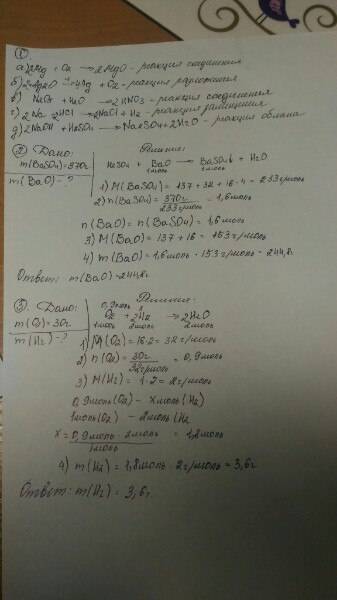 ①
а) 2Mg + O₂ → 2MgO - реакция соединения
б) 2Ag₂O = 4Ag + O₂ - реакция разложения
в) + H₂O → 2HNO₃ - реакция соединения
г) 2Na + 2HCl → 2NaCl + H₂ - реакция замещения
д) 2NaOH + H₂SO₄ → Na₂SO₄ + 2H₂O - реакция обмена
② Дано: Решение:
m(BaSO₄) = 370г
H₂SO₄ + BaO → BaSO₄↓ + H₂O
1моль 1моль
m(BaO) - ?
1) M(BaSO₄) = 137 + 32 + 16·4 = 233 г/моль
2) n(BaSO₄) = 370г / 233 г/моль = 1,6моль
n(BaO) = n(BaSO₄) = 1,6моль
3) M(BaO) = 137 + 16 = 153 г/моль
4) m(BaO) = 1,6моль · 153 г/моль = 244,8г
Ответ: m(BaO) = 244,8г
③ Дано: Решение:
m(O₂) = 30г
0,9моль x
O₂ + 2H₂ → 2H₂O
1моль 2моль 2моль
m(H₂) - ?
1) M(O₂) = 16·2 = 32 г/моль
2) n(O₂) = 30г / 32г/моль = 0,9моль
3) M(H₂) = 1·2 = 2г/моль
0,9моль(O₂) - xмоль(H₂)
1моль(O₂) - 2моль(H₂
x = 0,9моль · 2моль / 1моль = 1,8моль
4) m(H₂) = 1,8моль · 2г/моль = 3,6г
Ответ: m(H₂) = 3,6г